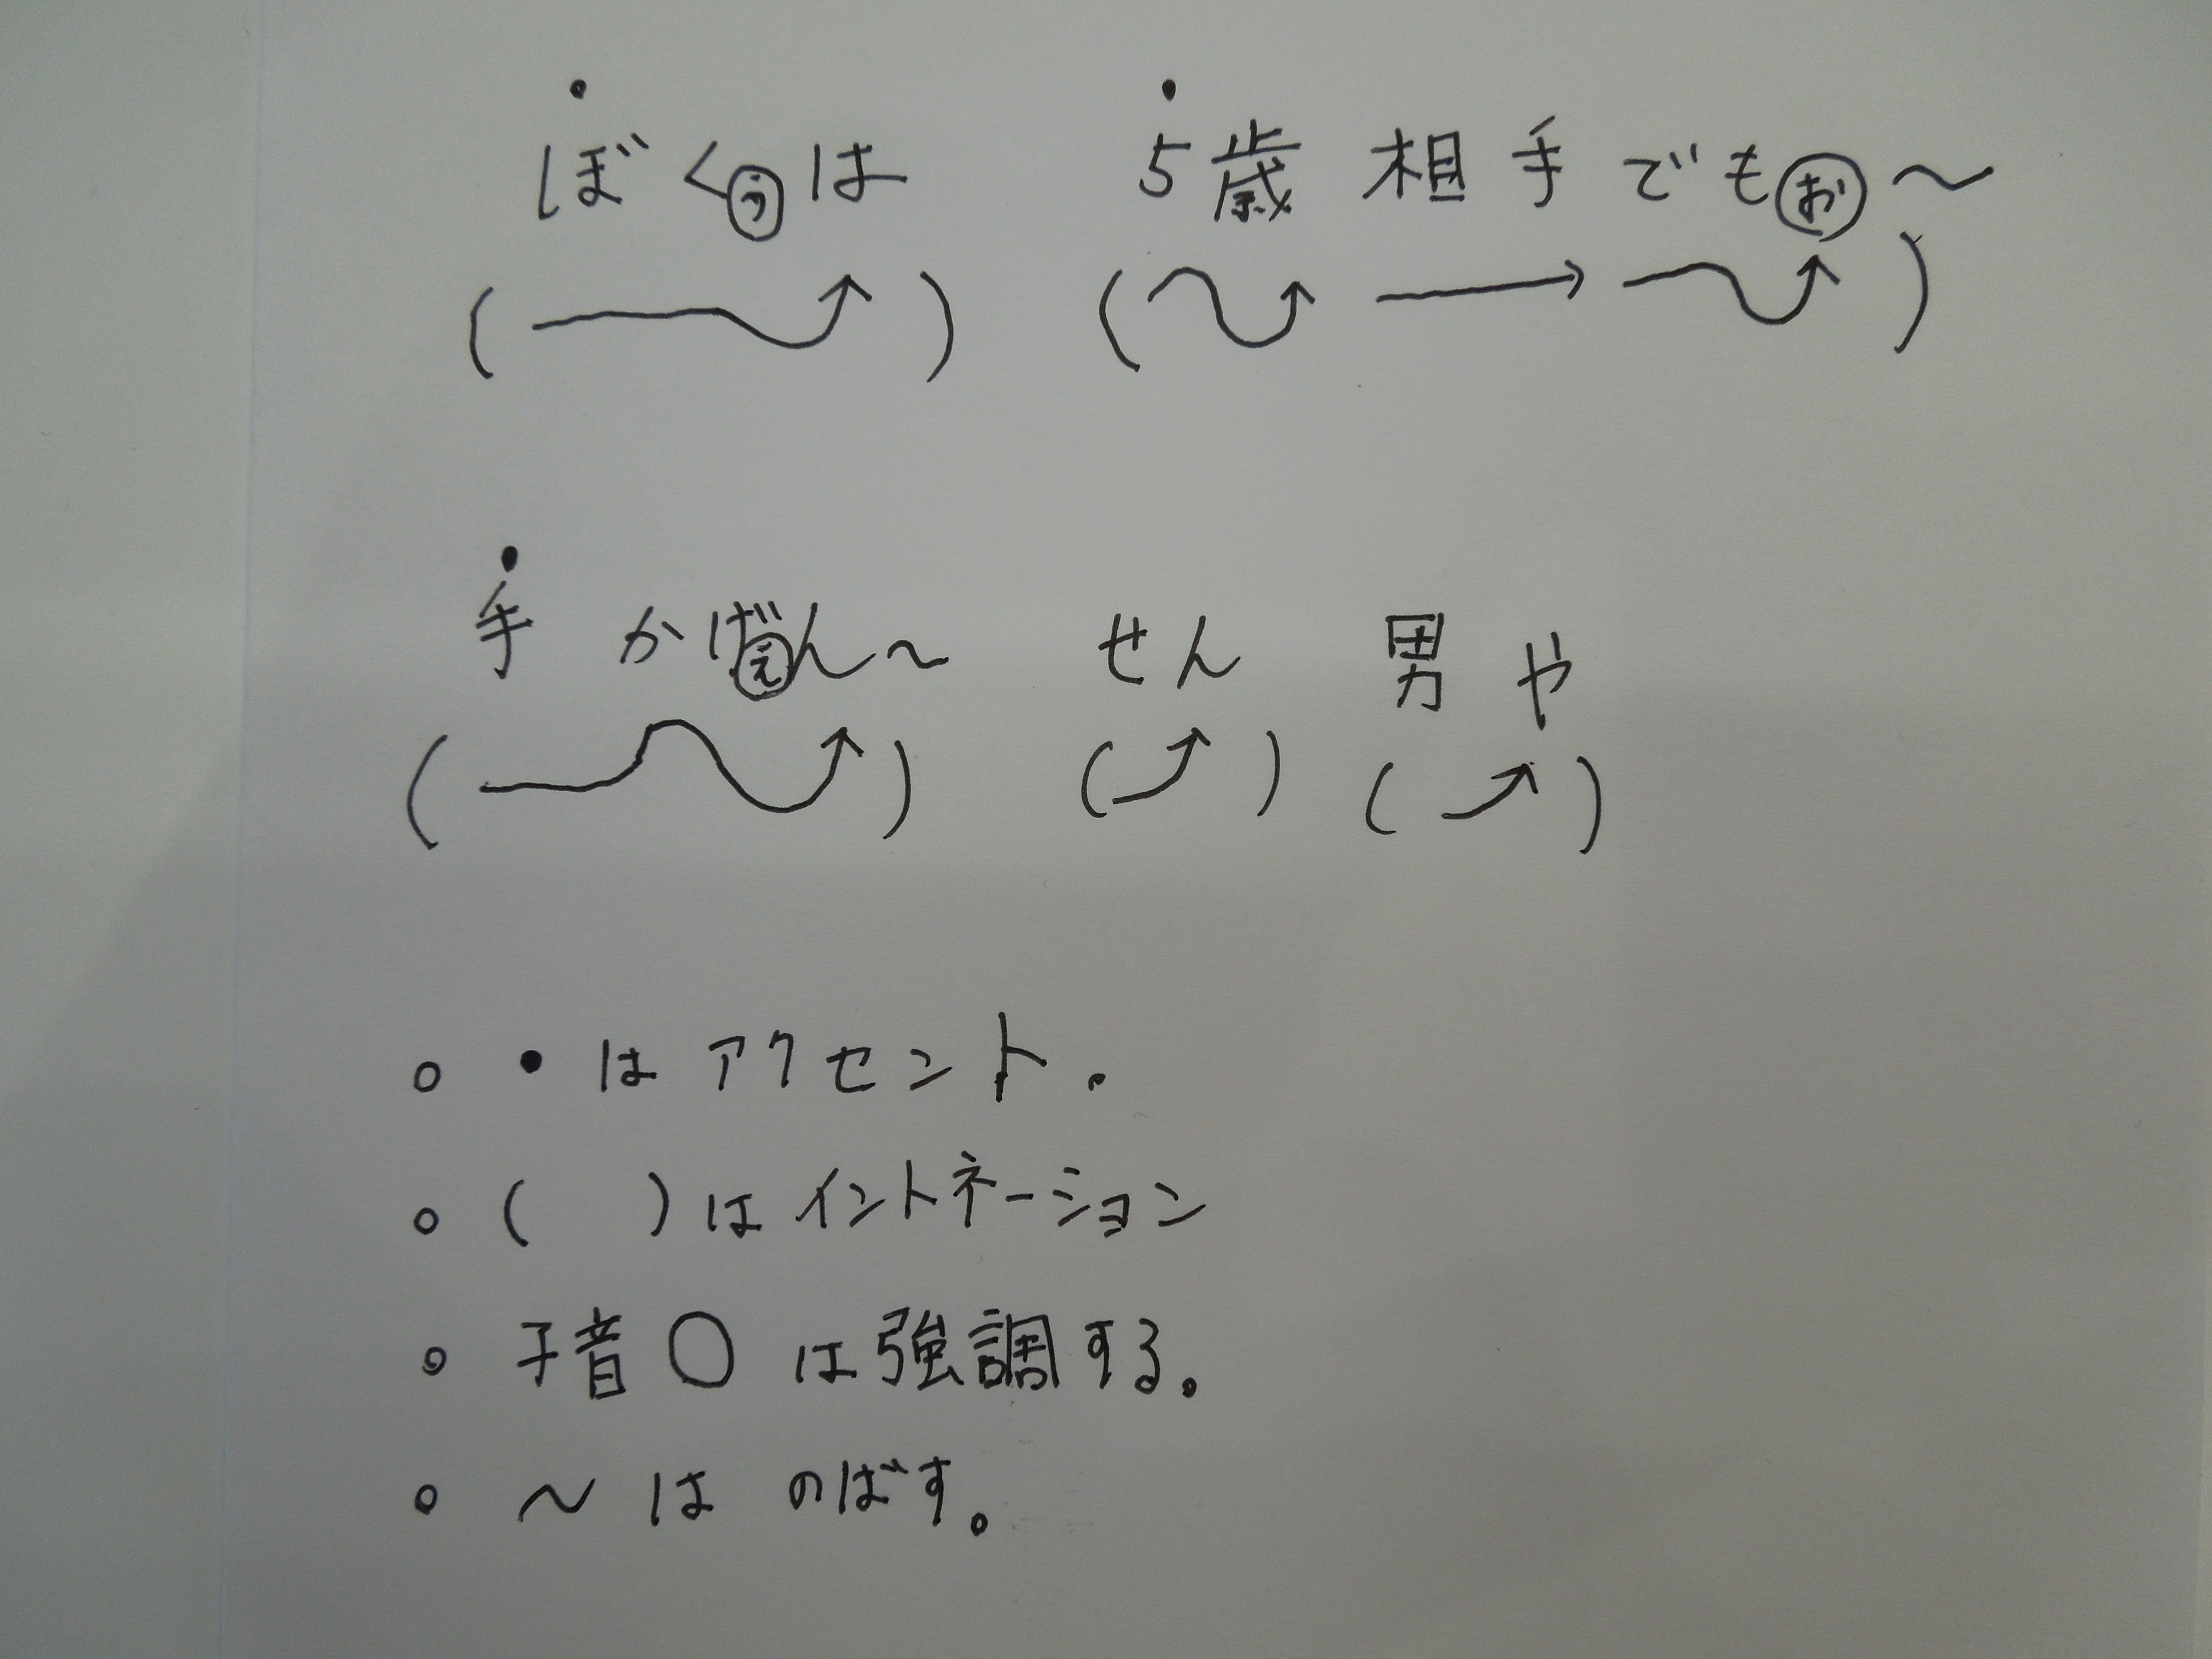 ぼくぅは 5歳相手でもぉ〜
手かげぇん〜 せん 男や
○ ●はアクセント。
○ (  )はイントネーション
○ 子音○は強調する。
○ 〜はのばす。